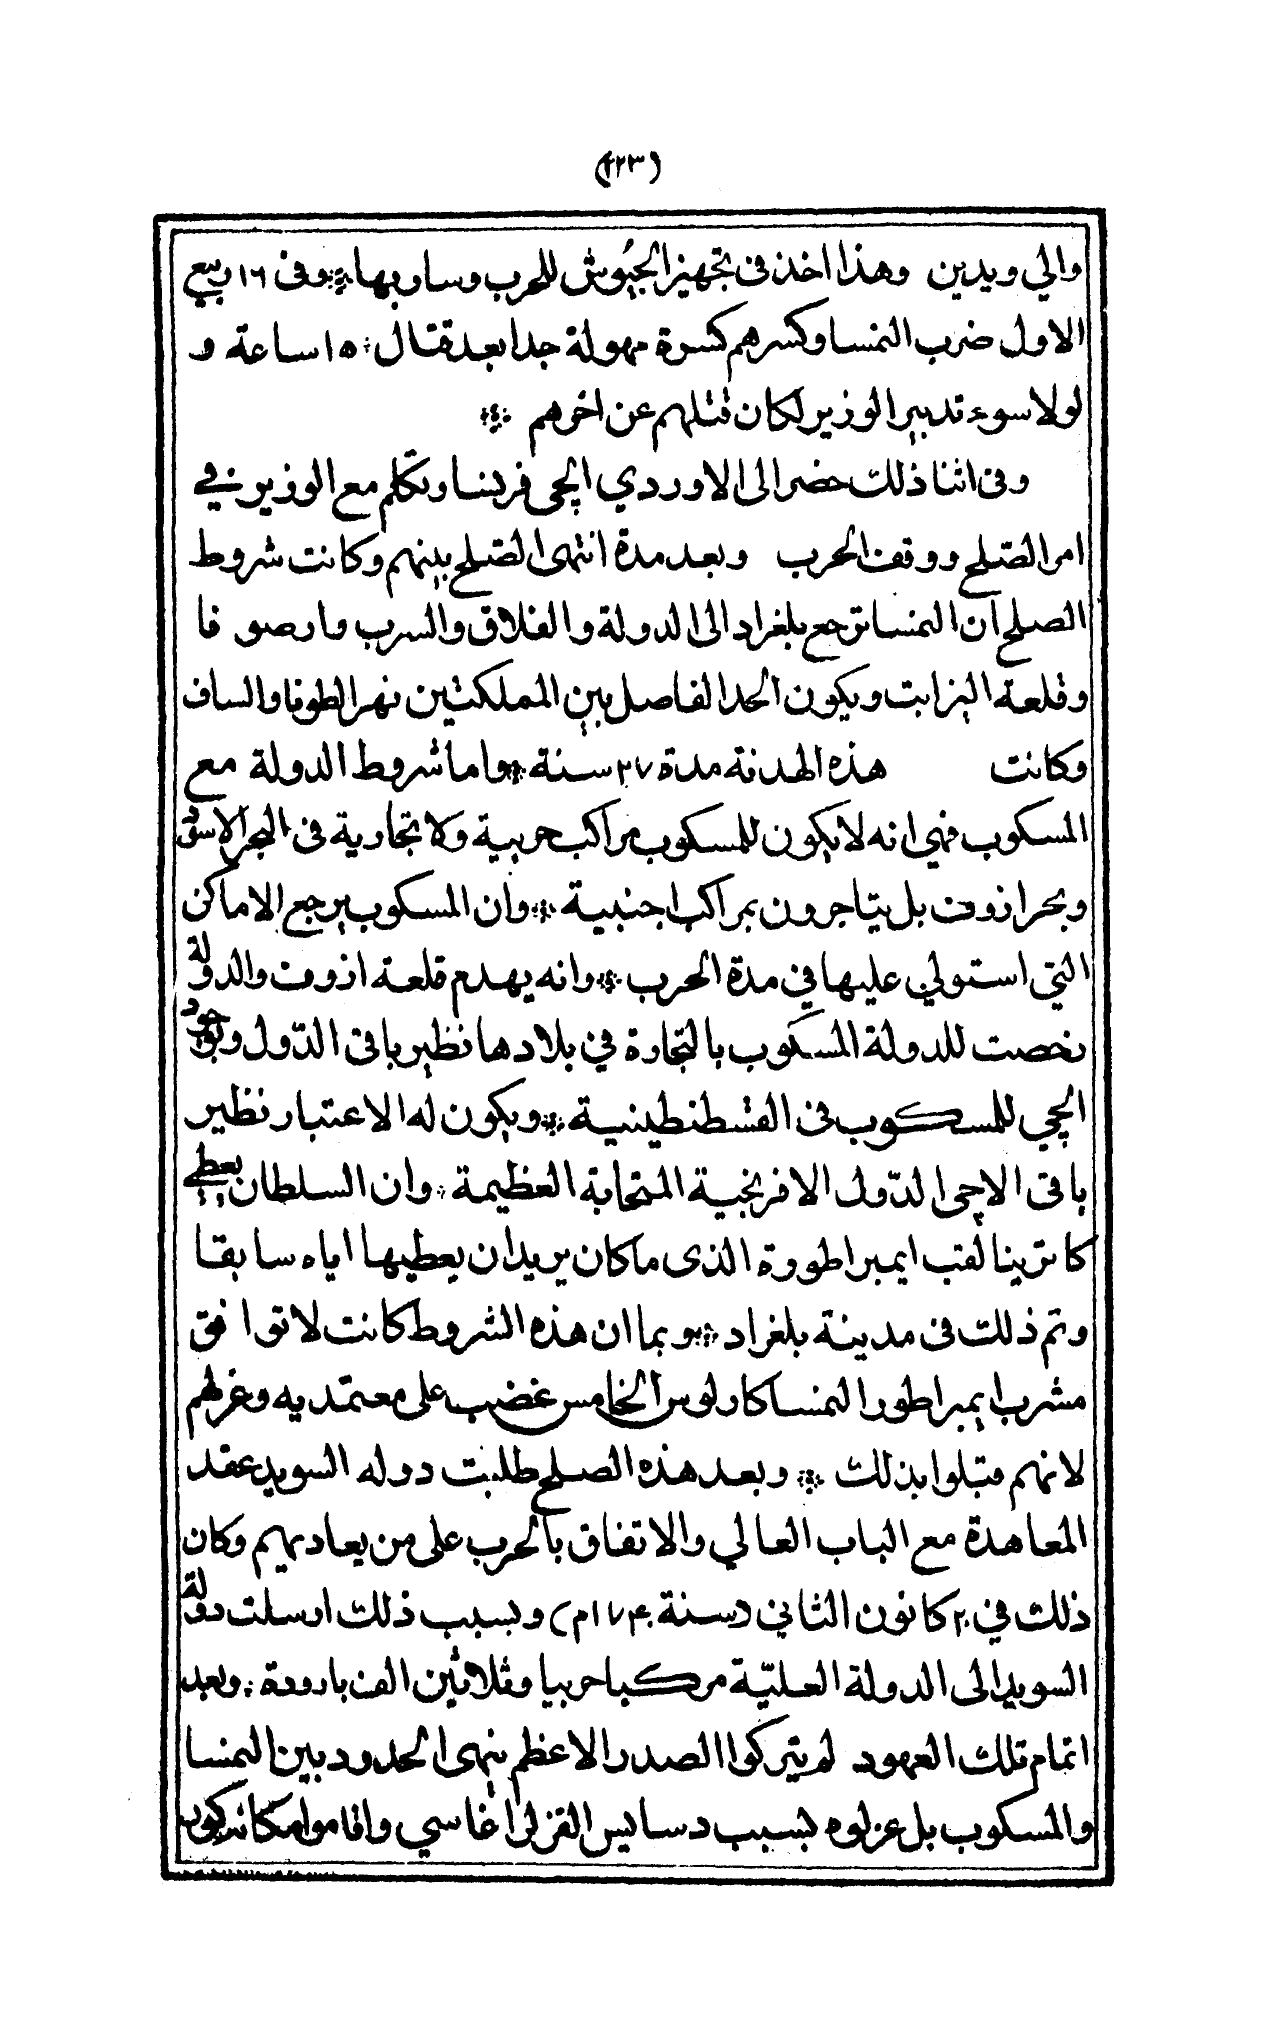 (٢٢٣)
والي ويدين وهذا اخذ في تجهيز الجيوش للحرب وسار بها ⁘ وفي ١٦ ربيع
الاول ضرب النمسا وكسرهم كسرة مهولة جدا بعد قتال ١٥ ساعة و
لولا سوء تدبير الوزير لكان قتلهم عن اخرهم ⁘
وفي اثنا ذلك حضر الى الاوردي الچي فرنسا وتكلم مع الوزير في
امر الصلح ووقف الحرب وبعد مدة انتهى الصلح بينهم وكانت شروط
الصلح ان النمسا ترجع بلغراد الى الدولة والفلاق والسرب وارصوفا
وقلعة اليزابت ويكون الحد الفاصل بين المملكتين نهر الطونا والساف
وكانت هذه الهدنة مدة ٢٧ سنة ⁘ واما شروط الدولة مع
المسكوب فهي انه لا يكون للمسكوب مراكب حربية ولا تجارية في البحر الاسود
وبحر ازوف بل يتاجرون بمراكب اجنبية ⁘ وان المسكوب يرجع الاماكن
التي استولي عليها في مدة الحرب ⁘ وانه يهدم قلعة ازوف والدولة
رخصت للدولة المسكوب بالتجارة في بلادها نظير باقي الدول وبوجود
الچي للمسكوب في القسطنطينية ⁘ ويكون له الاعتبار نظير
باقي الاچي الدول الافرنجية المتحابة العظيمة ⁘ وان السلطان يعطي
كاترينا لقب ايمبراطورة الذى ما كان يريد ان يعطيها اياه سابقا
وتم ذلك في مدينة بلغراد ⁘ وبما ان هذه الشروط كانت لا توافق
مشرب ايمبراطور النمسا كارلوس الخامس غضب على معتمديه وعزلهم
لانهم قبلوا بذلك ⁘ وبعد هذه الصلح طلبت دوله السويد عقد
المعاهدة مع الباب العالي والاتفاق بالحرب على من يعاديهم وكان
ذلك في ٢٠ كانون الثاني (سنة ١٧٤٠م) وبسبب ذلك ارسلت دولة
السويد الى الدولة العليّة مركبا حربيا وثلاثين الف بارودة ⁘ وبعد
اتمام تلك العهود لم يتركوا الصدر الاعظم ينهي الحدود بين النمسا
والمسكوب بل عزلوه بسبب دسايس القزلر اغاسي واقاموا مكانه